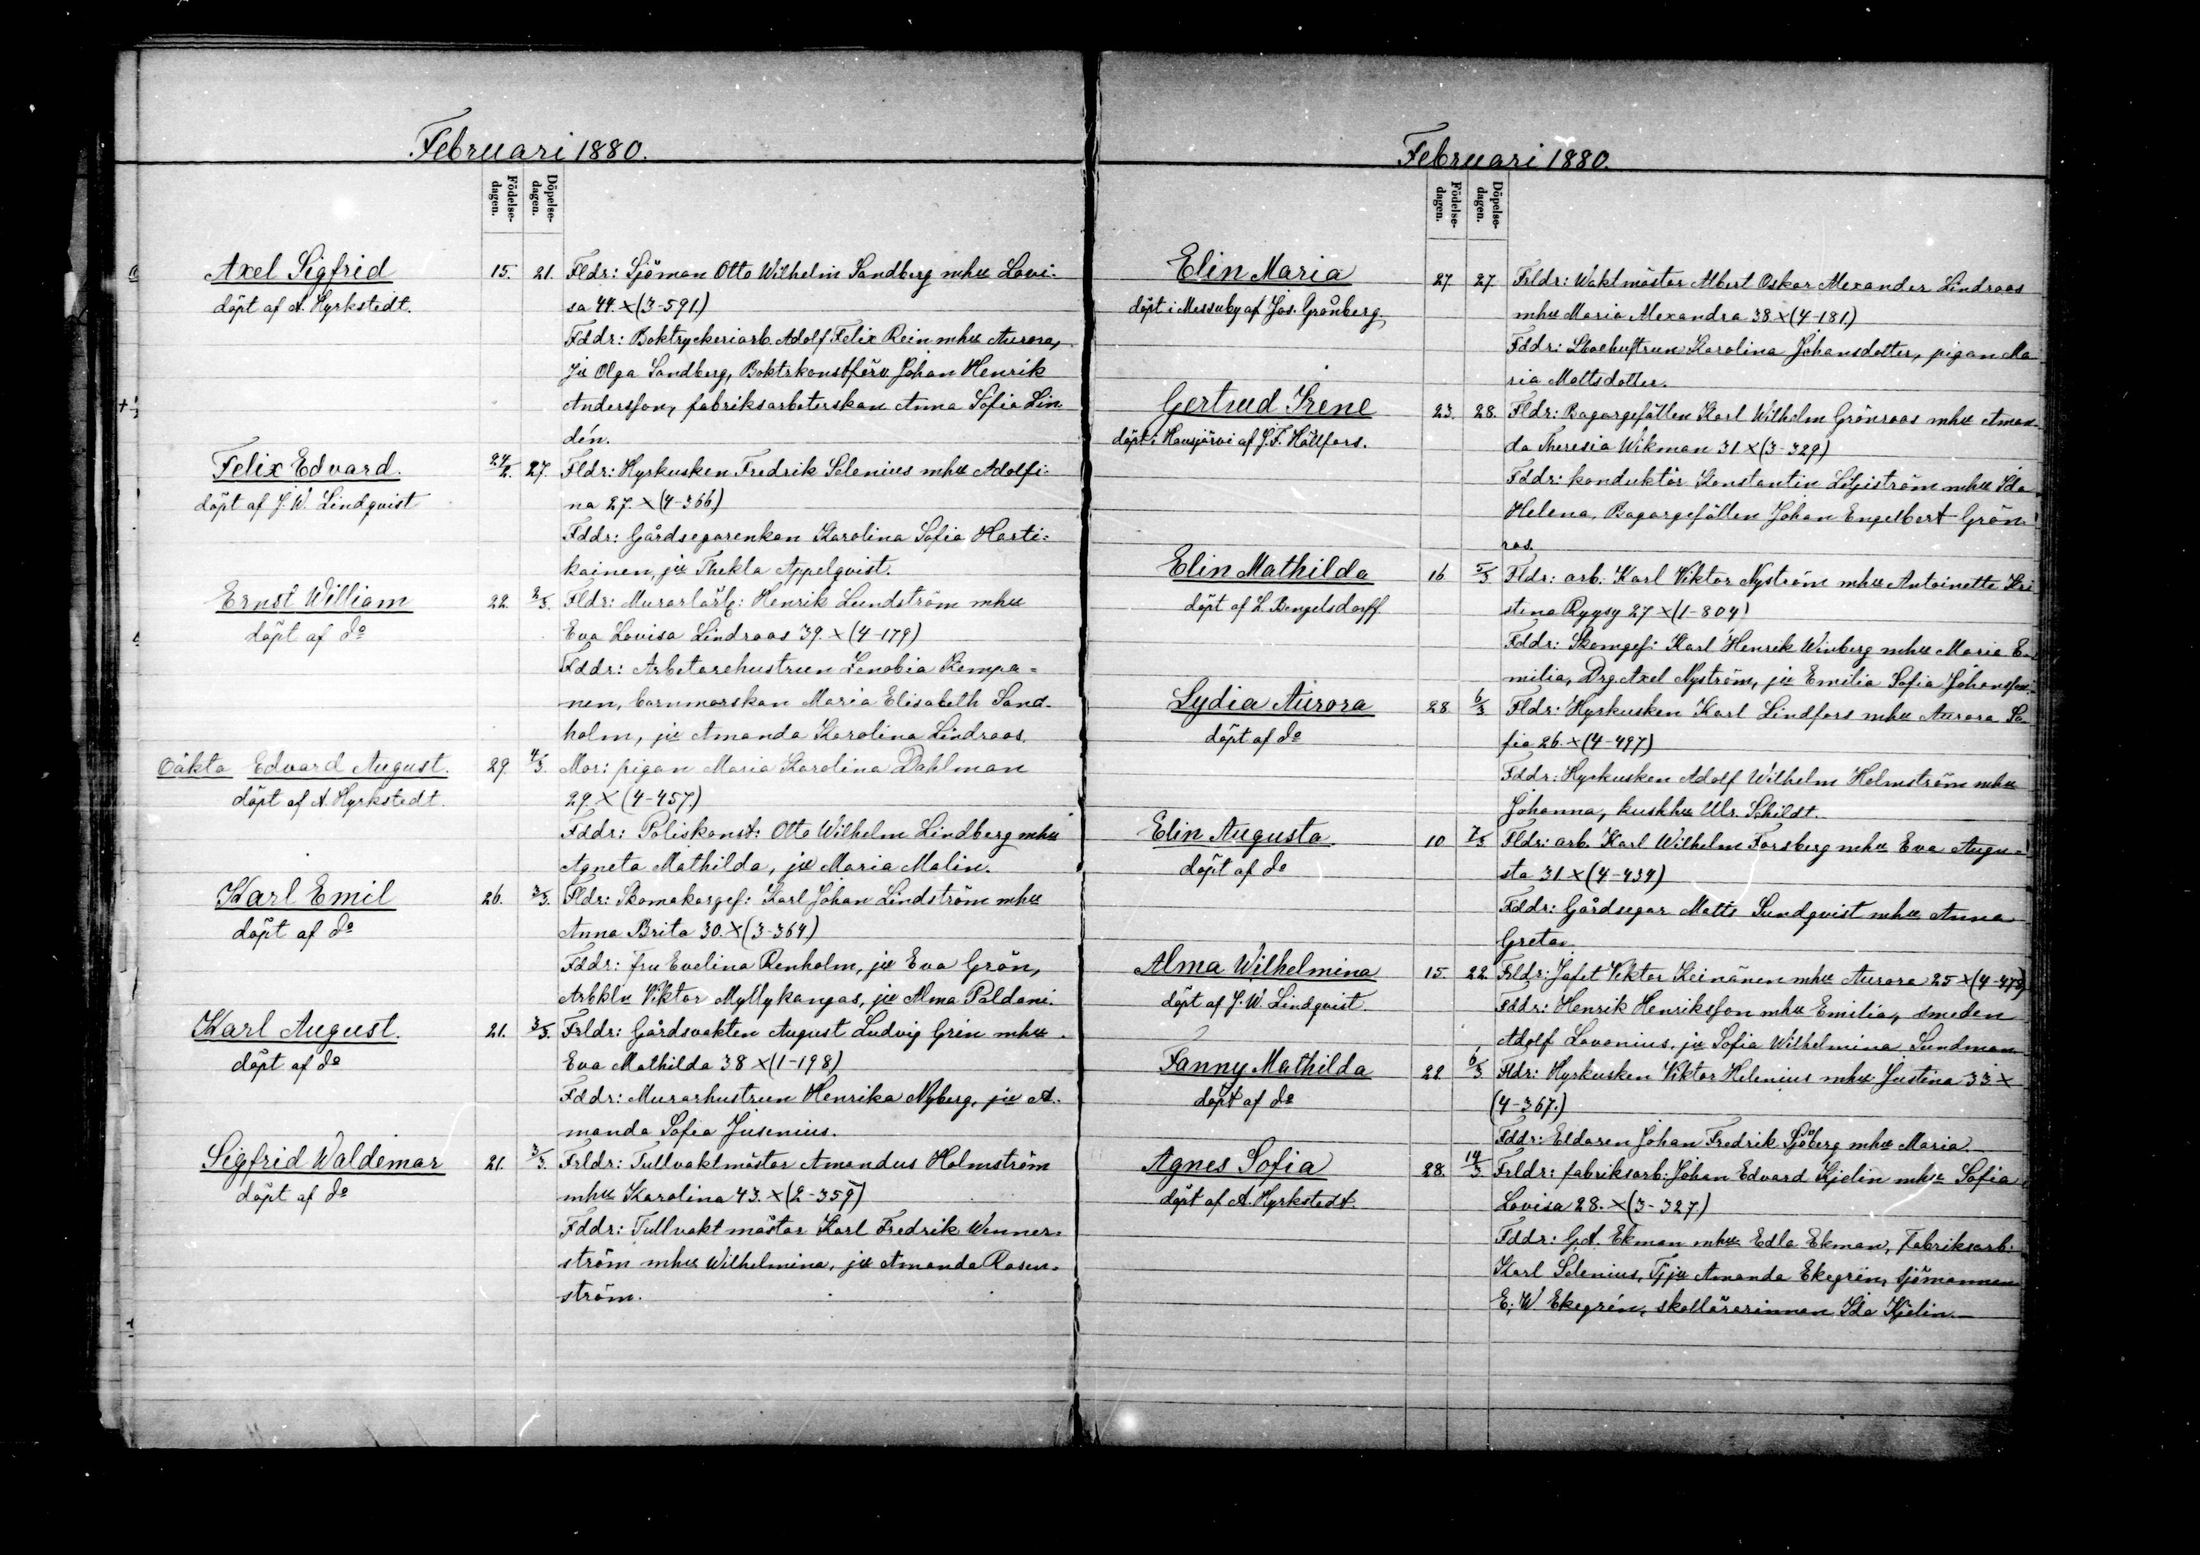 Februari 1880.
Födelse-dagen.
Döpelse-dagen.
Axel Sigfrid 15. 21. Fldr: Sjöman Otto Wilhelm Sandberg mhu Lovi-
döpt af A. Hyrkstedt. sa 44. x (3-591.)
Fddr: Boktryckeriarb. Adolf Felix Rein mhu Aurora,
ju Olga Sandberg, Boktrkonstförv Johan Henrik
Andersson, fabriksarbeterskan Anna Sofia Lin-
dén.
Felix Edvard. 24/2. 27. Fldr: Hyrkusken Fredrik Selenius mhu Adolfi-
döpt af J. W. Lindqvist na 27. x (4-366)
Fddr: Gårdsegarenkan Karolina Sofia Harti-
kainen, ju Thekla Appelqvist.
Ernst William 22. 2/3. Fldr: Murarlärl: Henrik Lundström mhu
döpt af do Eva Lovisa Lindroos 39. x (4-179)
Fddr: Arbetarehustrun Zenobia Kempa-
nen, barnmorskan Maria Elisabeth Sand-
holm, ju Amanda Karolina Lindroos.
Oäkta Edvard August. 29. 4/3. Mor: pigan Maria Karolina Dahlman
döpt af A. Hyrkstedt. 29. x (4-457.)
Fddr: Poliskonst: Otto Wilhelm Lindberg mhu
Agneta Mathilda, ju Maria Malin.
Karl Emil 26. 3/3. Fldr: Skomakargef: Karl Johan Lindström mhu
döpt af do Anna Brita 30. x (3-364)
Fddr: fru Evelina Renholm, ju Eva Grön,
Arbklv Viktor Myllykangas, ju Alma Paldani.
Karl August. 21. 3/3. Frldr: Gårdsvakten August Ludvig Grén mhu
döpt af do Eva Mathilda 38 x (1-198)
Fddr: Murarhustrun Henrika Nyberg, ju A-
manda Sofia Jusenius.
Sigfrid Waldemar 21. 3/3. Frldr: Tullvaktmästar Amandus Holmström
döpt af do mhu Karolina 43. x (2-359)
Fddr: Tullvaktmästar Karl Fredrik Wenner-
ström mhu Wilhelmina, ju Amanda Rosen-
ström.
Februari 1880.
Födelse-dagen.
Döpelse-dagen.
Elin Maria 27. 27. Frldr: Waktmästar Albert Oskar Alexander Lindroos
döpt i Messuby af Jos. Grönberg mhu Maria Alexandra 38 x (4-181.)
Fddr: Karolina Johansdotter, pigan Ma
ria Mattsdotter.
Gertrud Irene 23. 28. Fldr: Bagargesällen Karl Wilhelm Grönroos mhu Aman-
döpt i Hausjärvi af J. F. Hällfors. da Theresia Wikman 31. x (3-329)
Fddr: konduktör Konstantin Liljeström mhu Ida
Helena, Bagargesällen Johan Engelbert Grön-
ros.
Elin Mathilda 16 5/3 Fldr: arb: Karl Viktor Nyström mhu Antoinette Kri
döpt af L. Bengelsdorff. stina Ryysy 27 x (1-804)
Fddr: Skomgef: Karl Henrik Winberg mhu Maria E-
milia, Drg. Axel Nyström, ju Emilia Sofia Johansson.
Lydia Aurora 28. 6/3 Fldr: Hyrkusken Karl Lindfors mhu Aurora So-
döpt af do fia 26. x (4-497)
Fddr: Hyrkusken Adolf Wilhelm Holmström mhu
Johanna, kuskhu Ulr. Schildt.
Elin Augusta 10 7/3 Fldr: arb. Karl Wilhelm Forsberg mhu Eva Augu-
döpt af do sta 31 x (4-439)
Fddr: Gårdsegar Matts Sundqvist mhu Anna
Greta.
Alma Wilhelmina 15. 22. Frldr: Jafet Viktor Keinänen mhu Aurora 25 x (4-473)
döpt af J. W. Lindqvist. Fddr: Henrik Henriksson mhu Emilia, smeden
Adolf Lavonius, ju Sofia Wilhelmina Sundman
Fanny Mathilda 21. 6/3 Fldr: Hyrkusken Viktor Helenius mhu Justina 33 x
döpt af do (4-367.)
Fddr: Eldaren Johan Fredrik Sjöberg mhu Maria.
Agnes Sofia 28. 14/3 Frldr: fabriksarb: Johan Edvard Kjelin mhu Sofia
döpt af A. Hyrkstedt. Lovisa 28. x (3-327)
Fddr: G.A. Ekman mhu Edla Ekman, Fabriksarb.
Karl Selenius, Tjju Amanda Ekegrén, sjömannen
E. W Ekegrén, skollärarinnan Ida Kjelin.